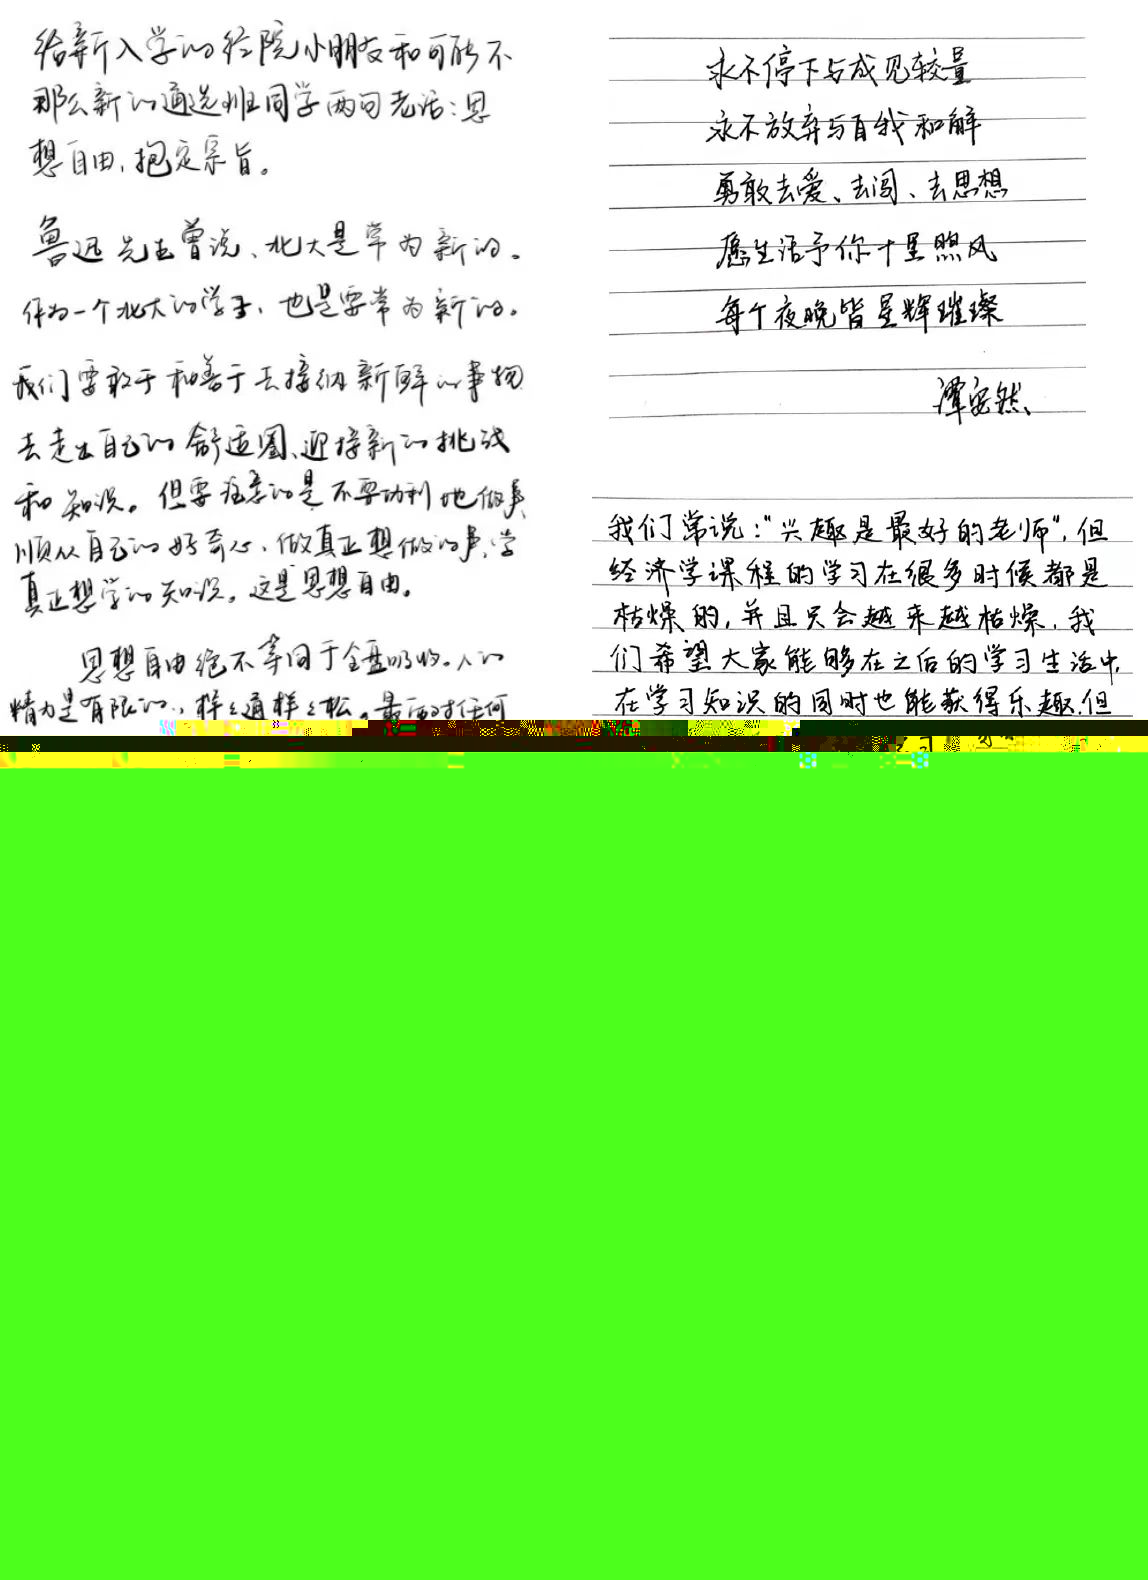 给新入学的经院小朋友和可能不
那么新的通选班同学两句老话：思
想自由，抱定宗旨。
鲁迅先生曾说、北大是常为新的。
作为一个北大的学子，也是要常为新的。
我们要敢于和善于去接纳新鲜的事物
去走出自己的舒适圈、迎接新的挑战
和知识。但要注意的是不要功利地做事
顺从自己的好奇心、做真正想做的事，学
真正想学的知识。这是思想自由。
思想自由绝不等同于全盘吸收。人的
精力是有限的，样样通样样松。最后对任何
永不停下与成见较量
永不放弃与自我和解
勇敢去爱、去闯、去思想
愿生活予你十里煦风
每个夜晚皆星辉璀璨
谭安然
我们常说：“兴趣是最好的老师”，但
经济学课程的学习在很多时候都是
枯燥的，并且只会越来越枯燥，我
们希望大家能够在之后的学习生活中，
在学习知识的同时也能获得乐趣，但